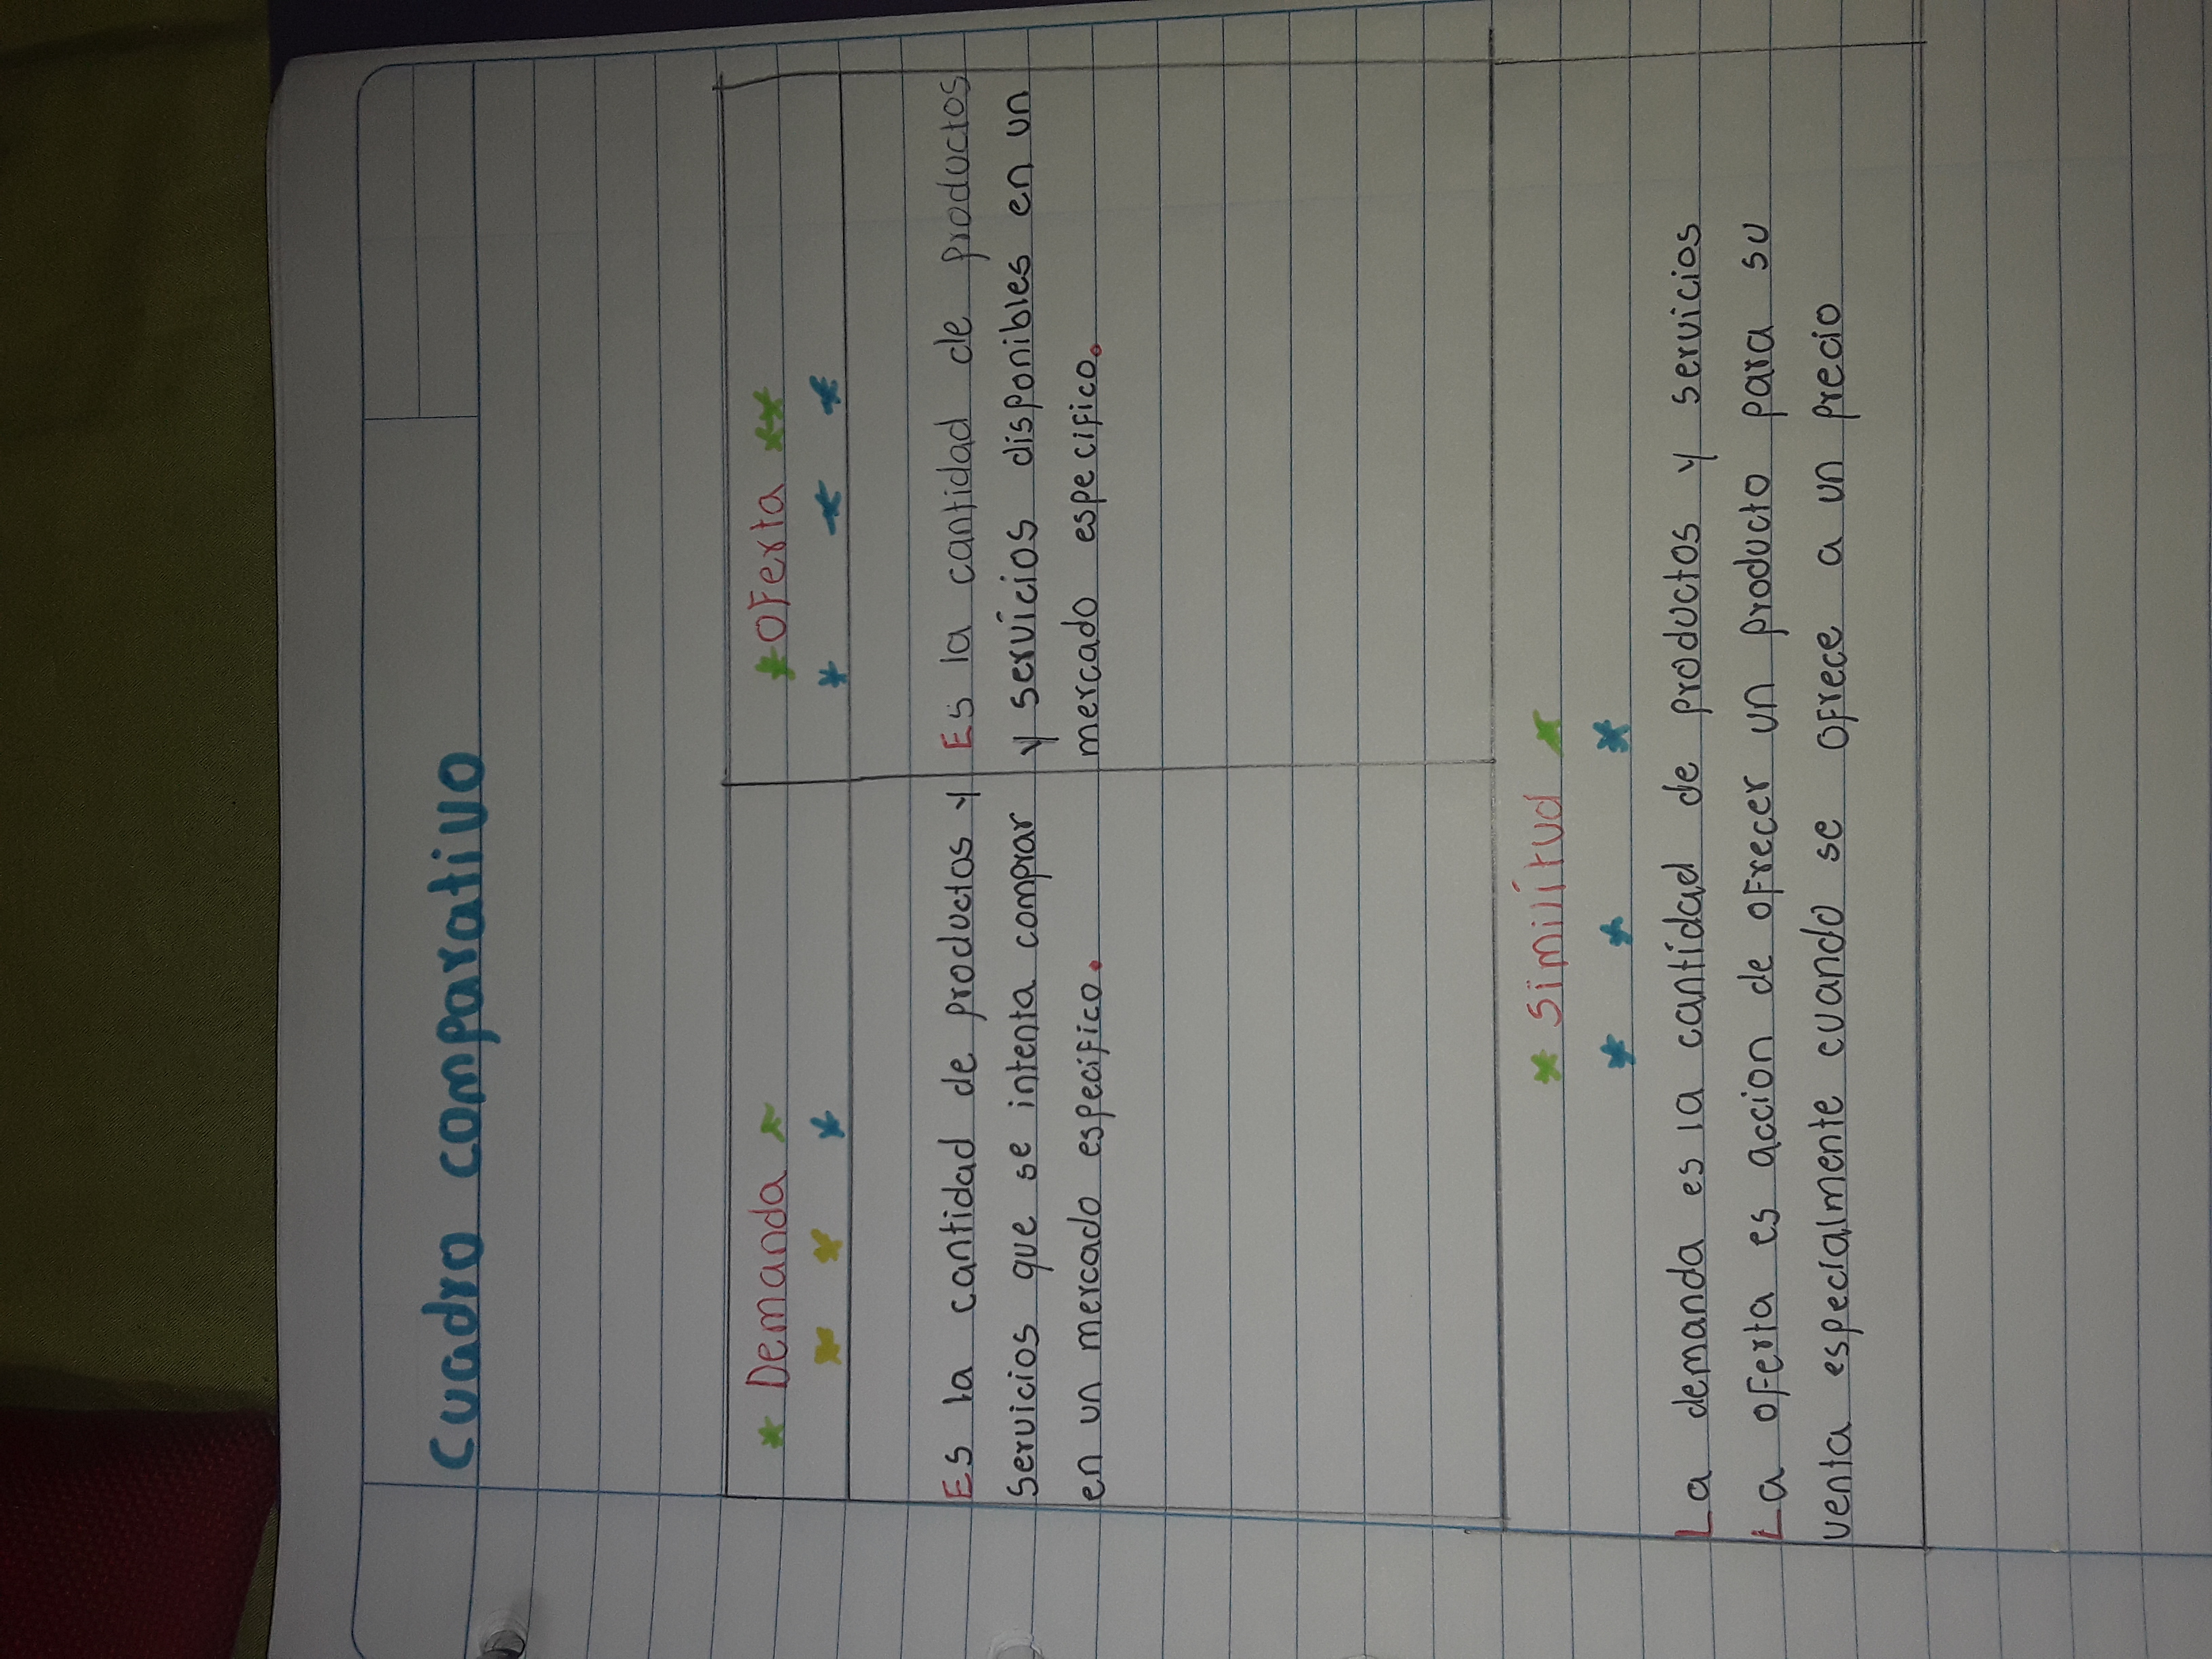 Cuadro comparativo
* Demanda *
* * *
Es la cantidad de productos y
servicios que se intenta comprar
en un mercado especifico.
* Oferta **
* * *
Es la cantidad de productos
y servicios disponibles en un
mercado especifico.
* Similitud *
* * *
La demanda es la cantidad de productos y servicios
La oferta es accion de ofrecer un producto para su
venta especialmente cuando se ofrece a un precio